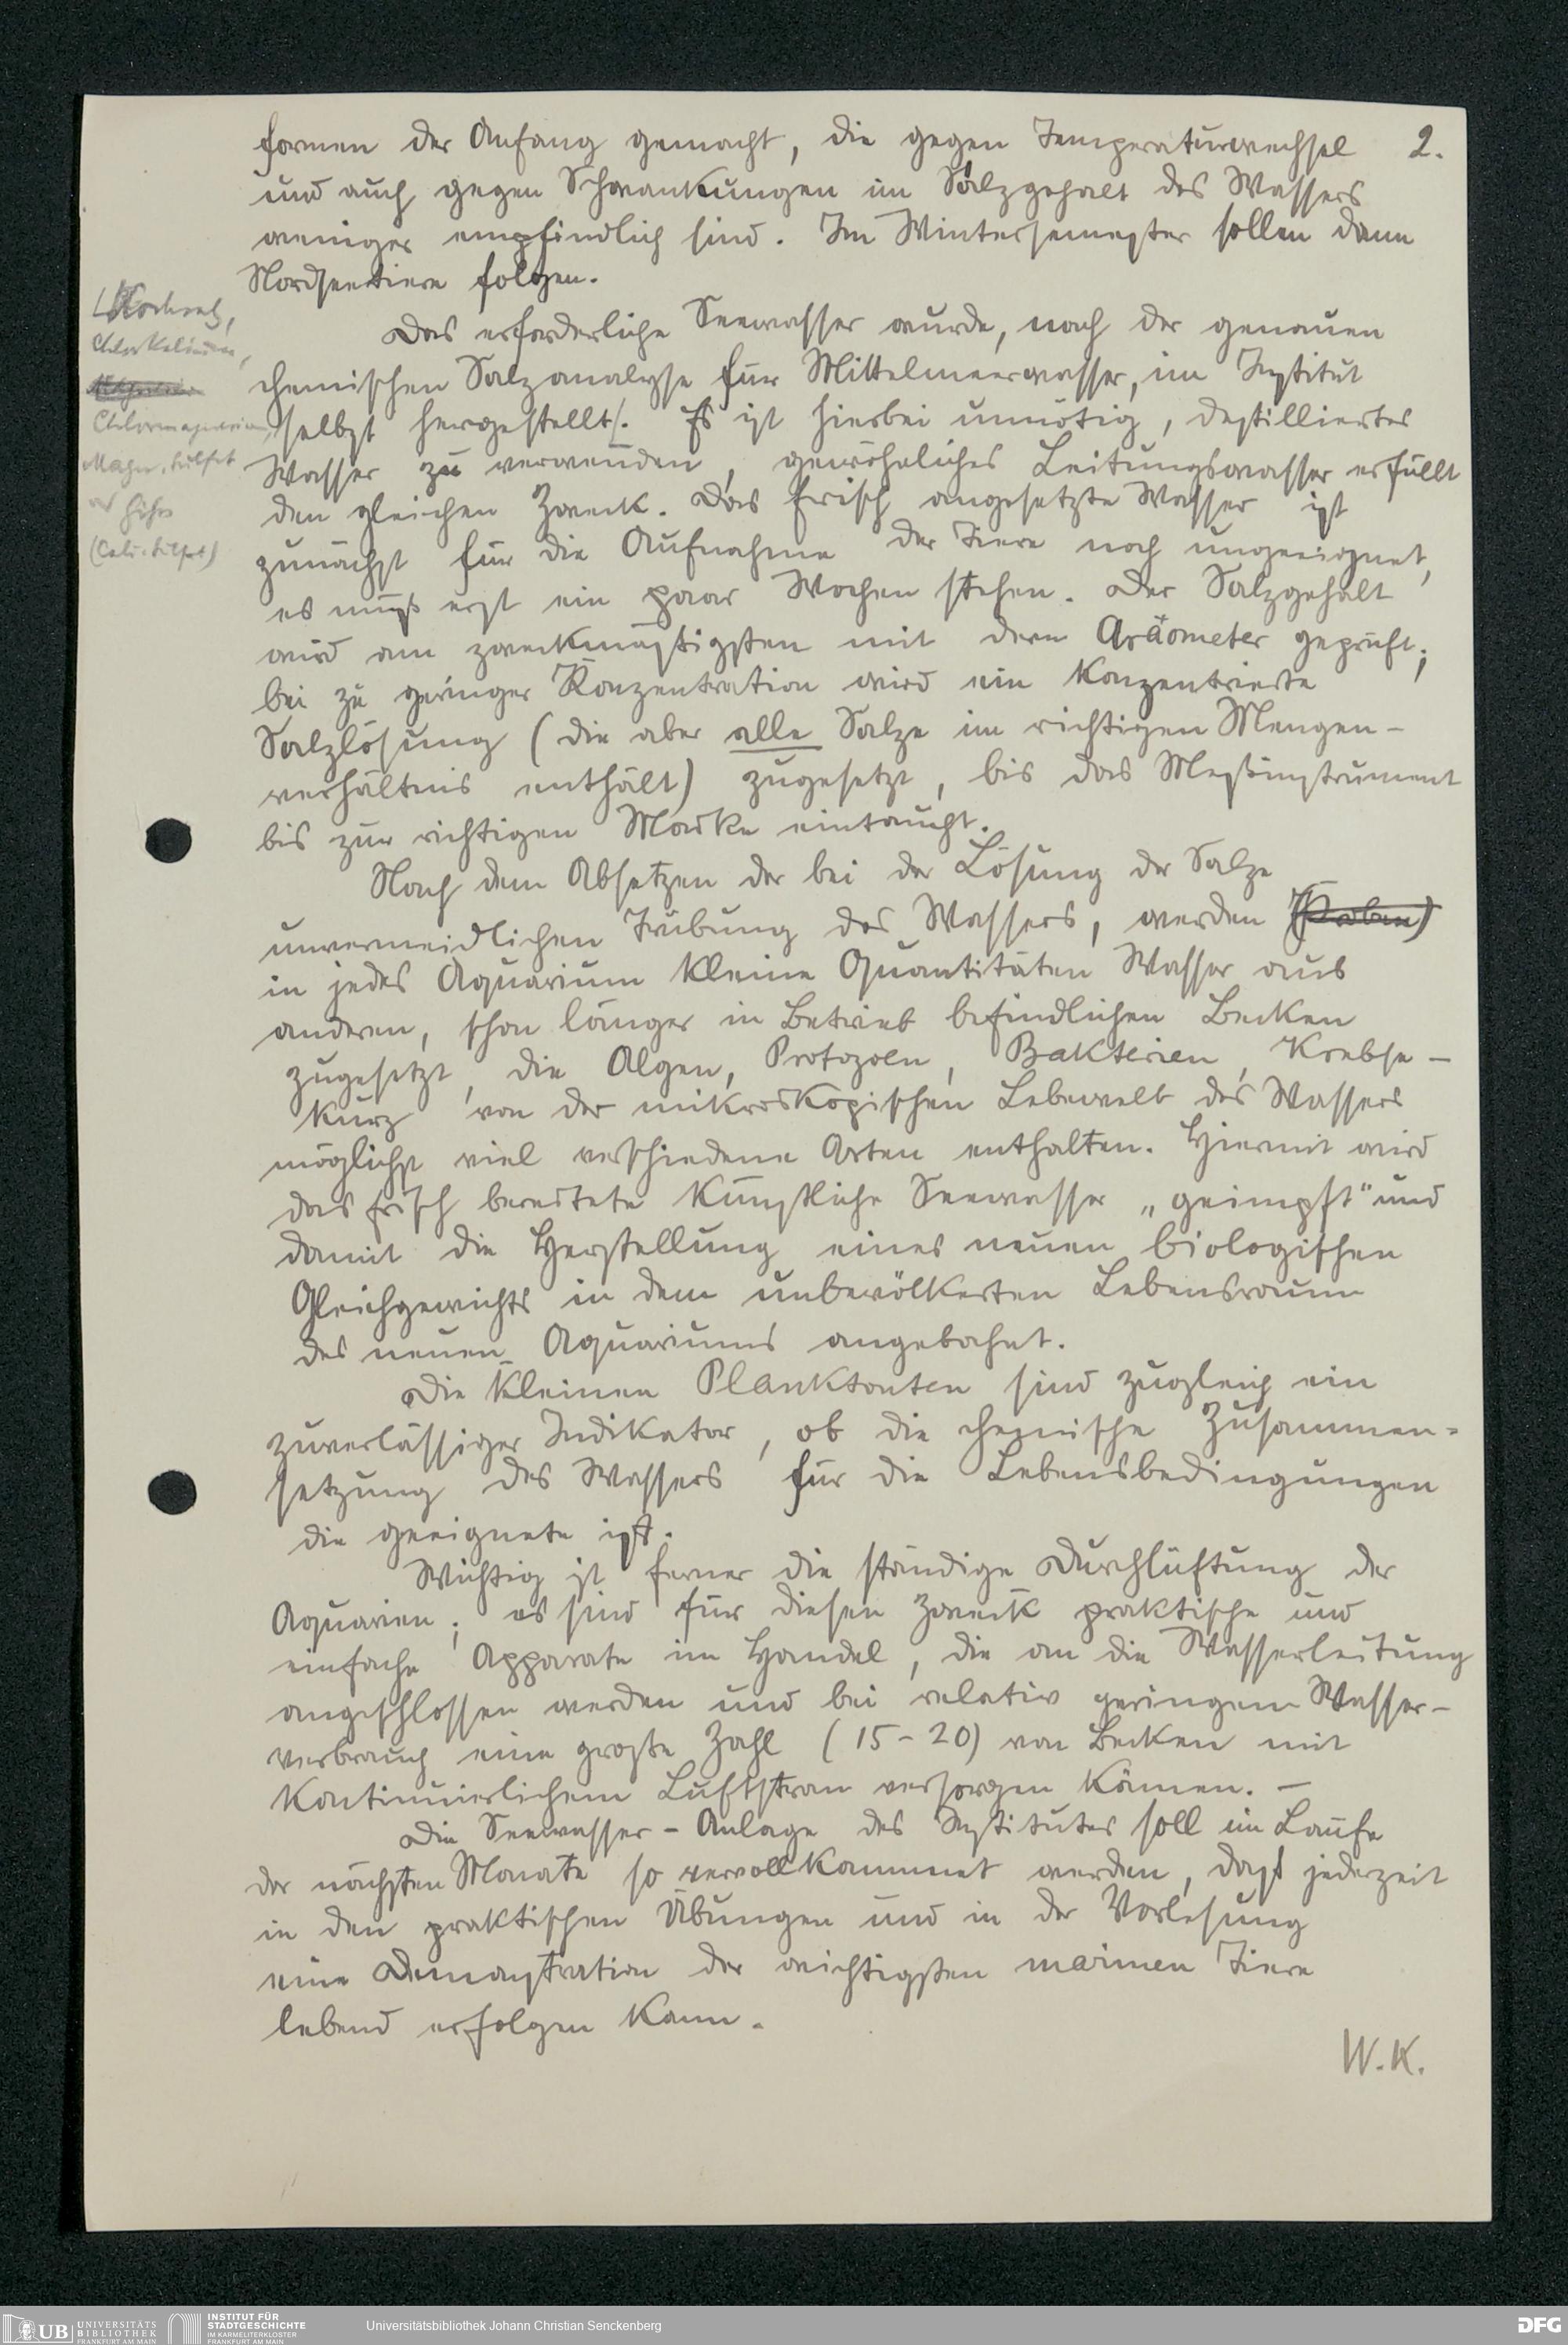 2.
formen der Anfang gemacht, die gegen Temperaturwechsel
und auch gegen Schwankungen im Salzgehalt des Wassers
weniger empfindlich sind. Im Wintersemester sollen dann
Nordseetiere folgen.
Das erforderliche Seewasser wurde, nach der genauen
chemischen Salzanalyse für Mittelmeerwasser, im Institut
selbst hergestellt/. Es ist hierbei unnötig, destilliertes
Wasser zu verwenden, gewöhnliches Leitungswasser erfüllt
den gleichen Zweck. Das frisch angesetzte Wasser ist
zunächst für die Aufnahme der Tiere noch ungeeignet,
es muß erst ein paar Wochen stehen. Der Salzgehalt
wird am zweckmäßigsten mit dem Aräometer geprüft;
bei zu geringer Konzentration wird ein konzentrierte
Salzlösung (die aber alle Salze im richtigen Mengen-
verhältnis enthält) zugesetzt, bis das Meßinstrument
bis zur richtigen Marke eintaucht.
Nach dem Absetzen der bei der Lösung der Salze
unvermeidlichen Trübung des Wassers, werden (Proben)
in jedes Aquarium kleine Quantitäten Wasser aus
anderen, schon länger in Betrieb befindlichen Becken
zugesetzt, die Algen, Protozoen, Bakterien, Krebse -
kurz von der mikroskopischen Lebewelt des Wassers
möglichst viel verschiedene Arten enthalten. Hiermit wird
das frisch bereitete künstliche Seewasser „geimpft" und
damit die Herstellung eines neuen biologischen
Gleichgewichts in dem unbevölkerten Lebensraum
des neuen Aquariums angebahnt.
Die kleinen Planktonten sind zugleich ein
zuverlässiger Indikator, ob die chemische Zusammen-
setzung des Wassers für die Lebensbedingungen
die geeignete ist.
Wichtig ist ferner die ständige Durchlüftung der
Aquarien; es sind für diesen Zweck praktische und
einfache Apparate im Handel, die an die Wasserleitung
angeschlossen werden und bei relativ geringem Wasser-
verbrauch eine große Zahl (15-20) von Becken mit
kontinuierlichem Luftstrom versorgen können. -
Die Seewasser-Anlage des Institutes soll im Laufe
der nächsten Monate so vervollkommnet werden, daß jederzeit
in den praktischen Übungen und in der Vorlesung
eine Demonstration der wichtigsten marinen Tiere
lebend erfolgen kann.
W.K.
Kochsalz,
Chlorkalium,
Chlormagnesium,
Magn. sulfat
(Calc. sulfat)
UB UNIVERSITÄTS
BIBLIOTHEK
FRANKFURT AM MAIN
INSTITUT FÜR
STADTGESCHICHTE
IM KARMELITERKLOSTER
FRANKFURT AM MAIN
Universitätsbibliothek Johann Christian Senckenberg
DFG